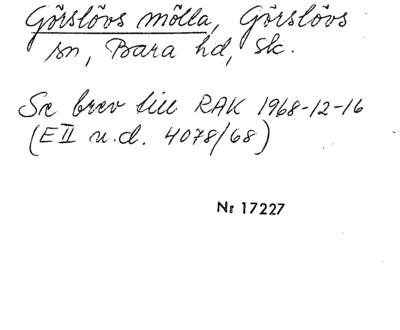 Görslövs mölla, Görslövs
sn, Bara hd, Sk.
Se brev till RAK 1968-12-16
(E II u.d. 4078/68)
Nr 17227